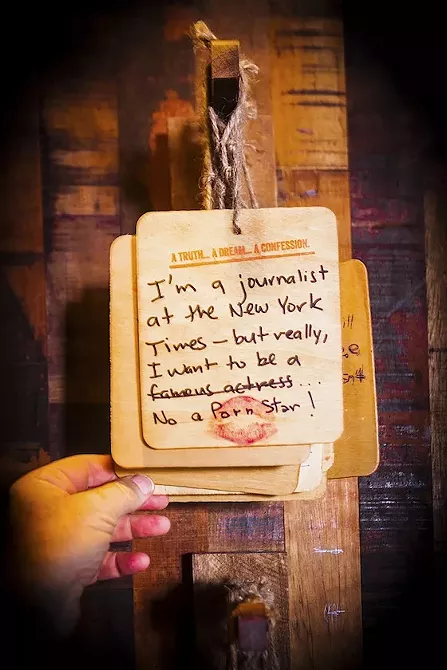 A TRUTH... A DREAM... A CONFESSION.
I'm a journalist
at the New York
Times – but really,
I want to be a
famous actress...
No a Porn Star!